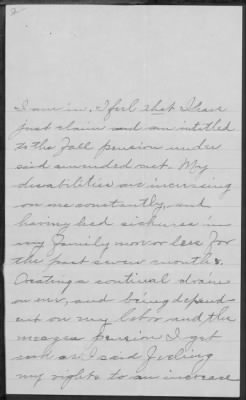 2
I am in. I feel that I have
just claim and am intitled
to the full pension under
said amended act. My
disabilities are incresing
on me constantly, and
having had sickness in
my family mor or less for
the past seven months.
Creating a continual drain
on me, and being depend
ent on my labor and the
meager pension I get
 as I said feeling
my rights to an increase